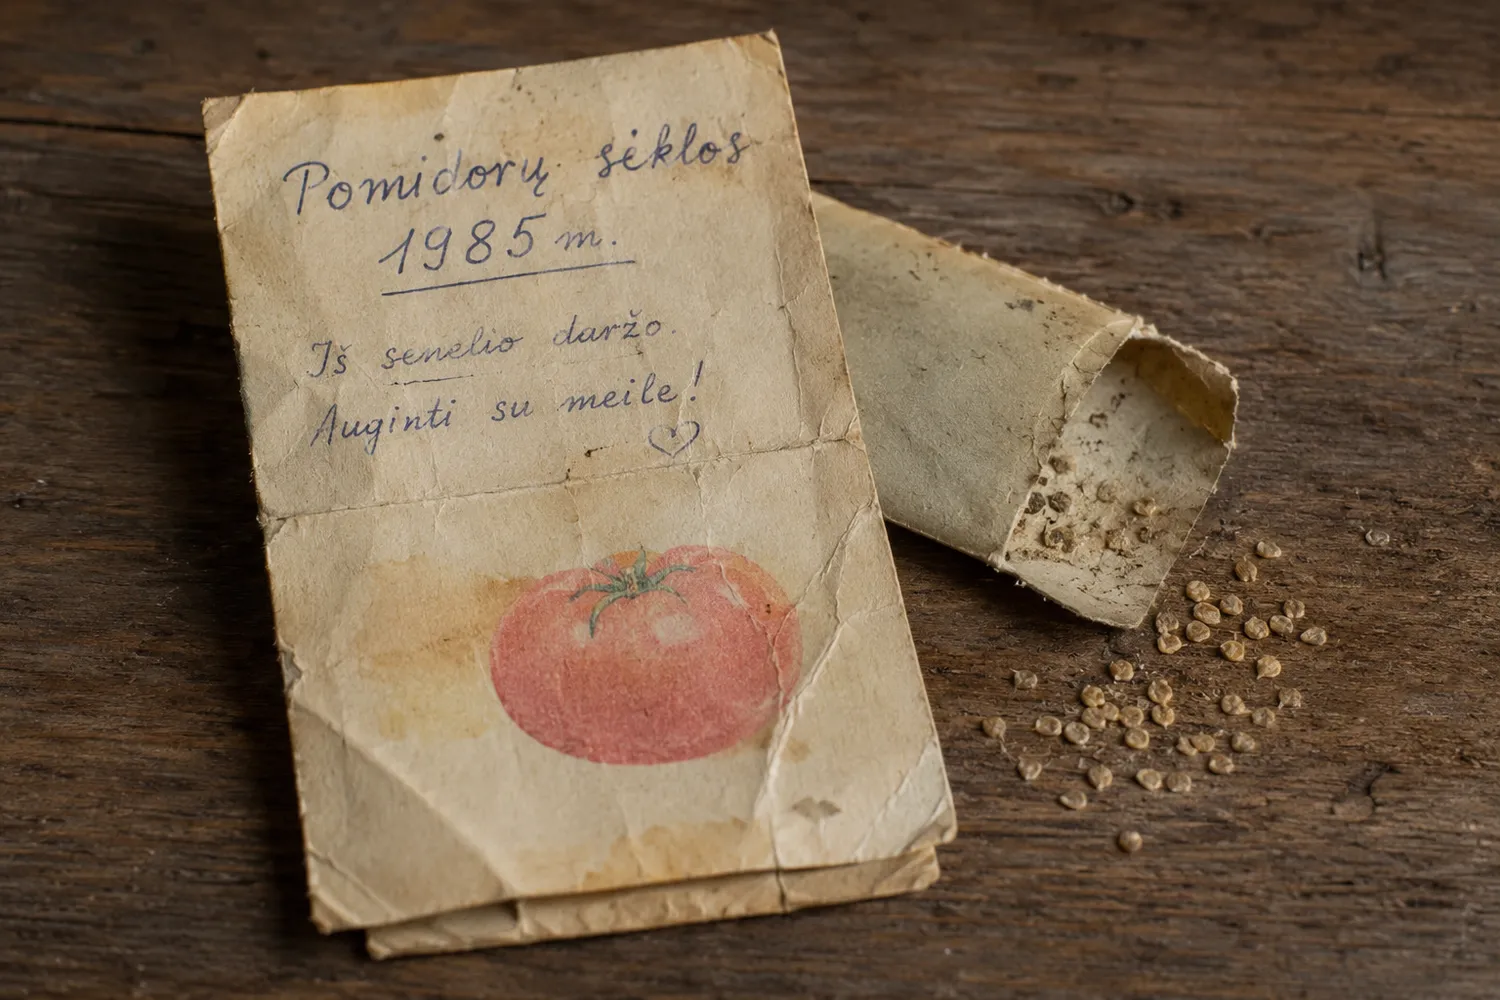 Pomidorų sėklos
1985 m.
Iš senelio daržo.
Auginti su meile!